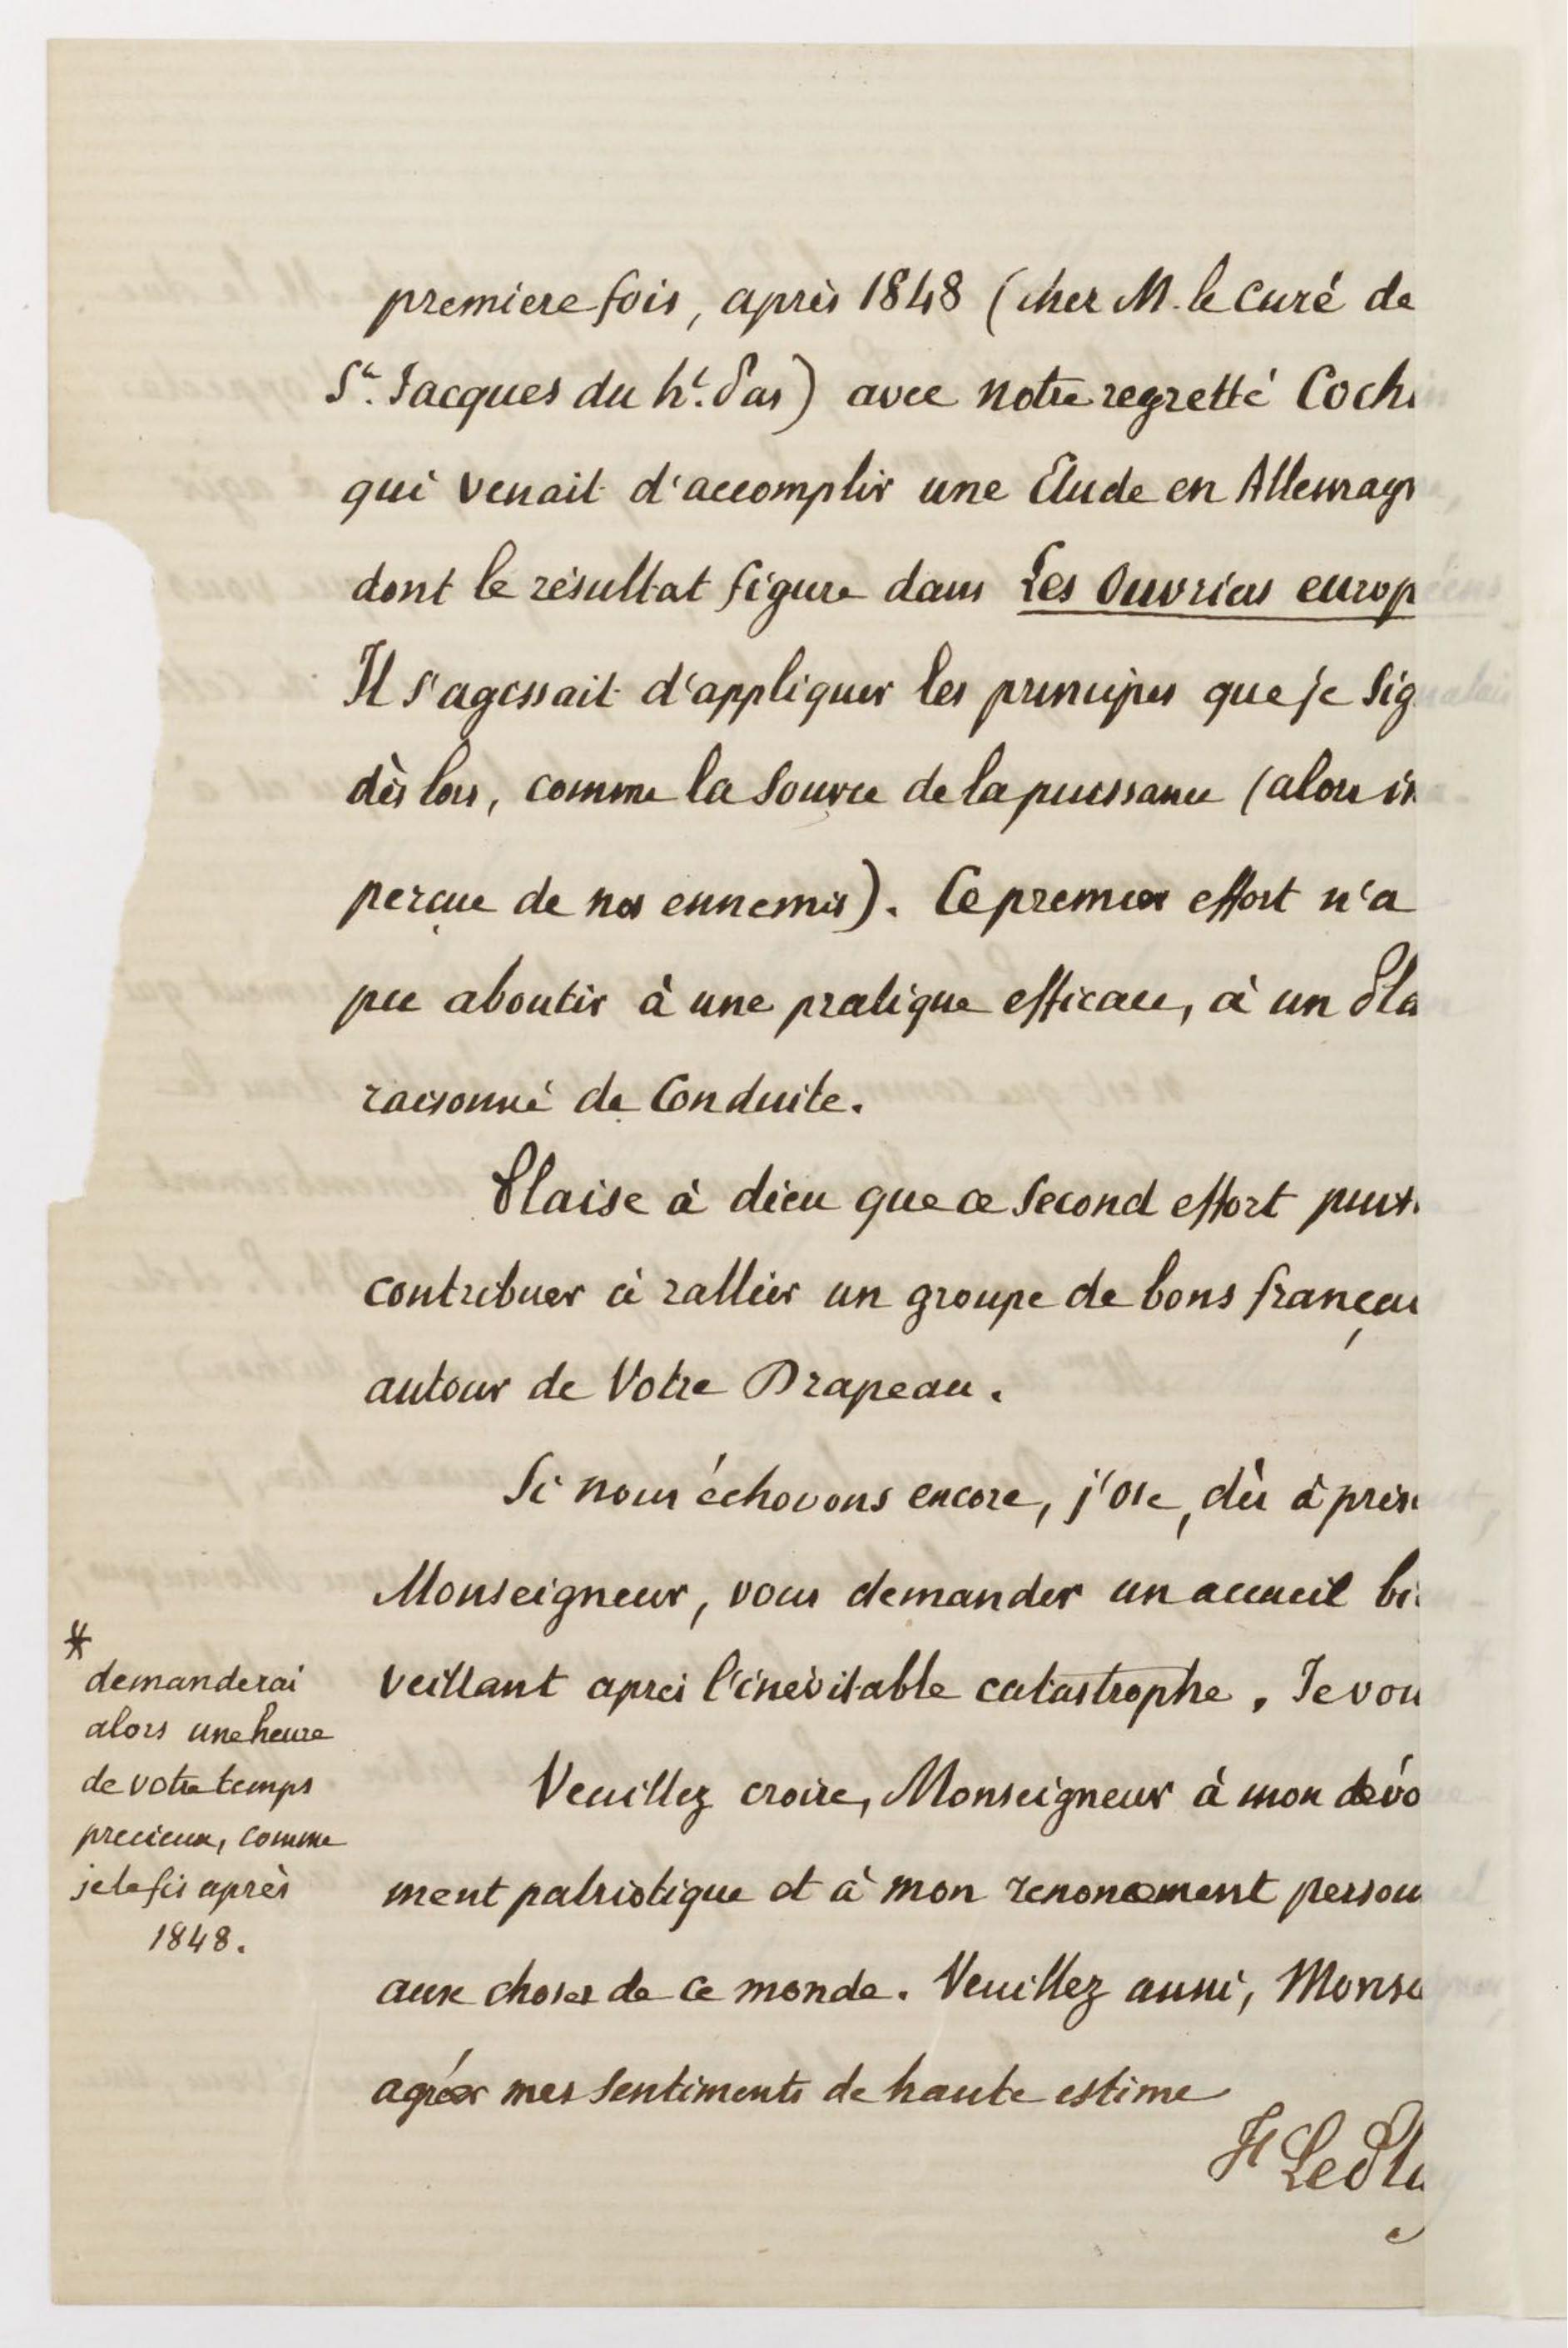 premiere fois, après 1848 (cher M. le Curé de
St. Jacques du ht. Pas) avec notre regretté Cochin
qui venait d'accomplir une Etude en Allemagn
dont le résultat figure dans Les Ouvriers européens
Il s'agissait d'appliquer les principes que je signalais
dès lors, comme la Source de la puissance (alors in
perçue de nos ennemis). Ce premier effort n'a
pu aboutir à une pratique efficace, à un Pla
raisonné de Conduite.
Plaise à dieu que ce Second effort puis
contribuer à rallier un groupe de bons françai
autour de Votre Drapeau.
Si nous échouons encore, j'ose, dès à prés
Monseigneur, vous demander un accueil bi
veillant après l'inévitable catastrophe. Je vou
*
demanderai
alors une heure
de votre temps
precieux, comme
je le fis après
1848.
Veuillez croire, Monseigneur à mon dévo
ment patriotique et à mon renoncement person
aux choses de ce monde. Veuillez aussi, Monse
agréer mes Sentiments de haute estime
F Le Play